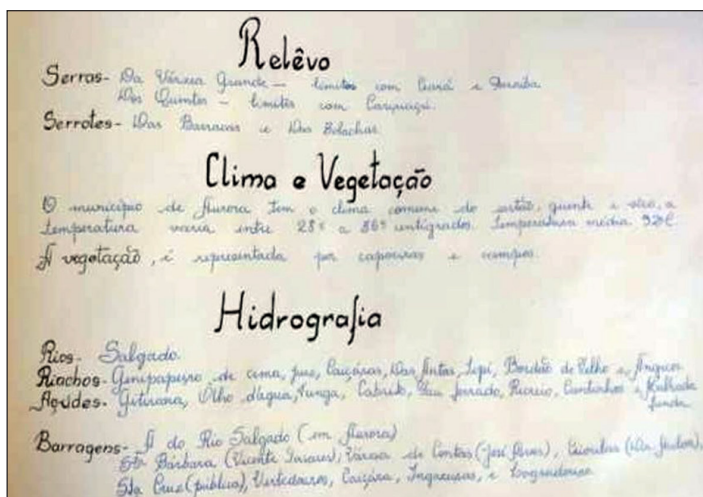 Relêvo
Serras- Da Várzea Grande — limites com Ceará e Paraíba.
Dos Quintos — limites com
Serrotes- Das Barrocas e Das Bolachas.
Clima e Vegetação
O município de Aurora tem o clima comum do sertão, quente e sêco, a
temperatura varia entre 28º a 36º centígrados. Temperatura média 32ºC
A vegetação, é representada por capoeiras e campos.
Hidrografia
Rios- Salgado.
Riachos- Genipapeiro de cima, Caiçaras, Das Antas, Bordão de Velho e Angicos
Açudes- Gitirana, Olho d'água, Cabrito, Pau ferrado, Recreio, Cantinho e Malhada
funda
Barragens- A do Rio Salgado (em Aurora)
Sta Bárbara (Vicente Tavares), Várzea de Contas (José
Sta Cruz (pública), Caiçara, Ingazeiras, e Logradouro